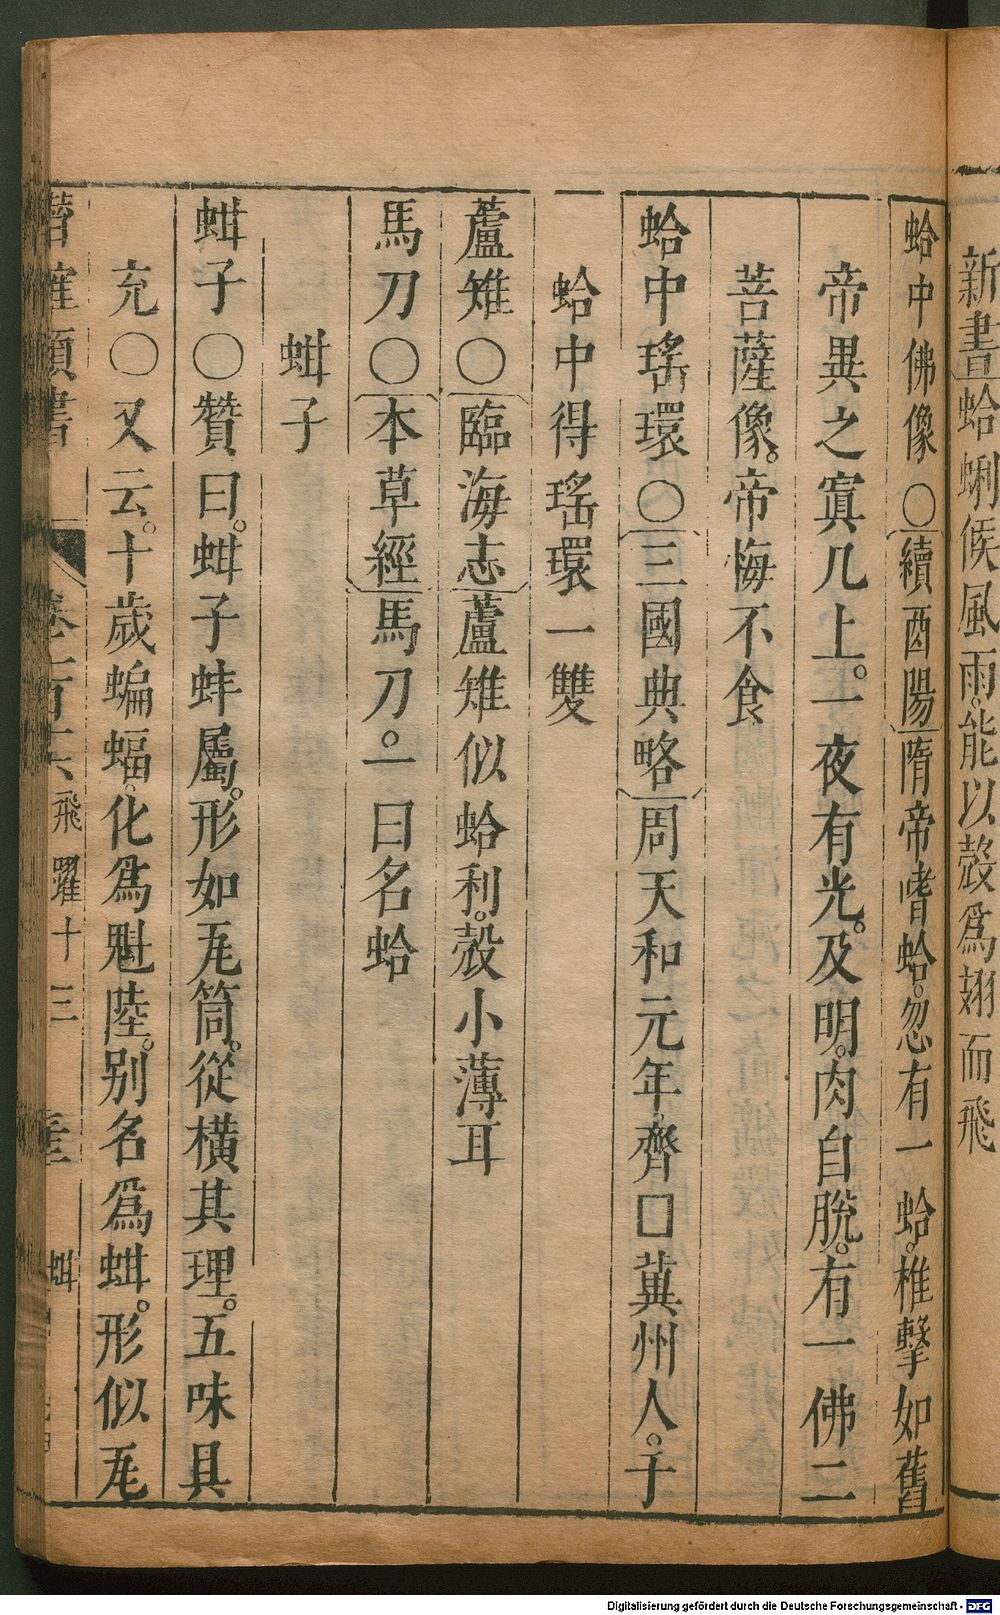 新書蛤蜊候風雨能以殼爲翅而飛
蛤中佛像○續酉陽隋帝嗜蛤忽有一蛤椎擊如舊
帝異之寘几上一夜有光及明肉自脫有一佛二
菩薩像帝悔不食
蛤中瑤環○三國典略周天和元年齊□冀州人于
蛤中得瑤環一雙
蘆雉○臨海志蘆雉似蛤利殼小薄耳
馬刀○本草經馬刀一曰名蛤
蚶子
蚶子○贊曰蚶子蚌屬形如瓦筒從橫其理五味具
充○又云十歲蝙蝠化爲魁陸别名爲蚶形似瓦
潛確類書 卷百 飛躍十三 蚶
Digitalisierung gefördert durch die Deutsche Forschungsgemeinschaft - DFG